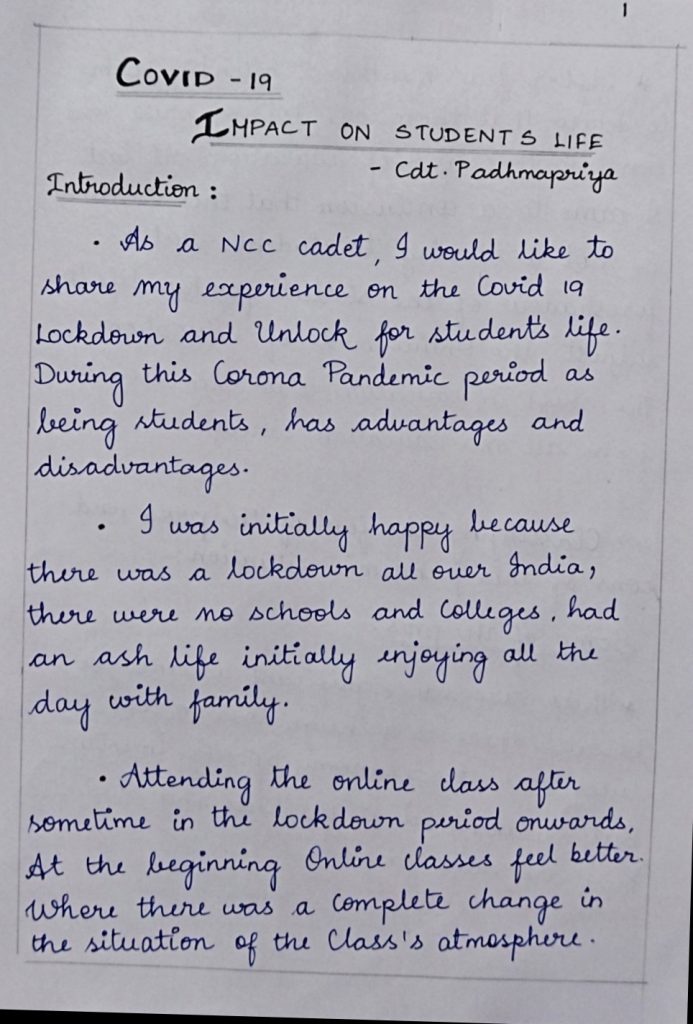 1
COVID - 19
IMPACT ON STUDENTS LIFE
- Cdt. Padhmapriya
Introduction :
• As a NCC cadet, I would like to
share my experience on the Covid 19
Lockdown and Unlock for student's life.
During this Corona Pandemic period as
being students, has advantages and
disadvantages.
• I was initially happy because
there was a lockdown all over India,
there were no schools and Colleges, had
an ash life initially enjoying all the
day with family.
• Attending the online class after
sometime in the lockdown period onwards,
At the beginning Online classes feel better.
Where there was a complete change in
the situation of the Class's atmosphere.